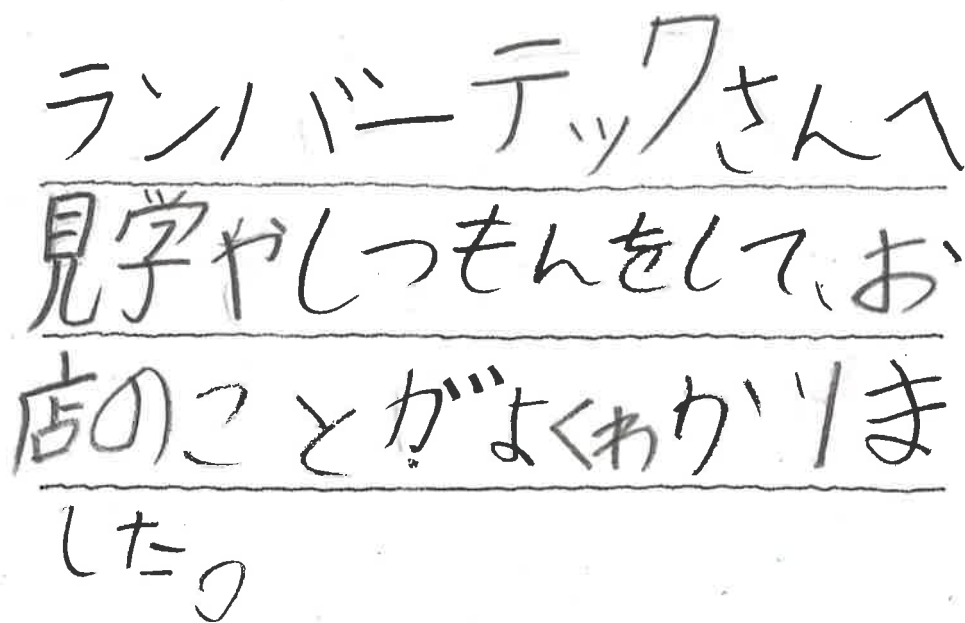 ランバーテックさんへ
見学やしつもんをして、お
店のことがよくわかりま
した。